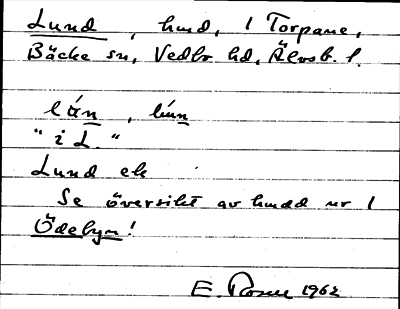 Lund, hmd, 1 Torpane,
Bäcke sn, Vedbo hd, Älvsb. l.
lán,
"i L."
Lund ek
Se översikt av hmdd nr 1
Ödebyn!
E. Rosen 1962